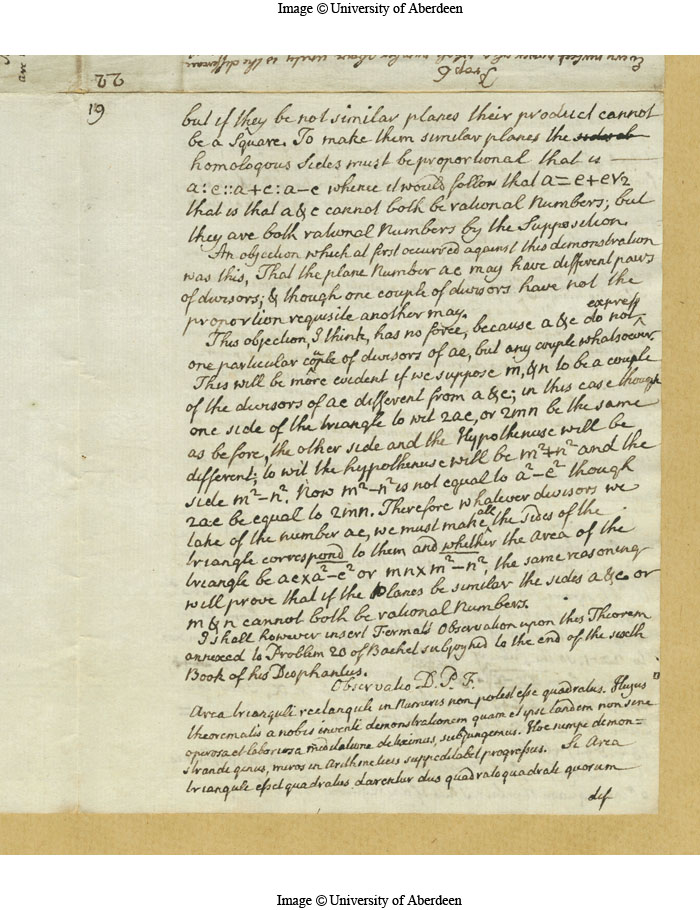 Image © University of Aberdeen
Every
number
is the
22
Prop 6
19
but if they be not similar planes their product cannot
be a Square. To make them similar planes the
homologous Sides must be proportional that is
a:e::a+e:a-e whence it would follow that a=e+e√2
that is that a&e cannot both be rational Numbers; but
they are both rational Numbers by the Supposition.
An objection which at first occurred against this demonstration
was this, That the plane Number ae may have different pairs
of divisors; & though one couple of divisors have not the
proportion requisite another may.
This objection, I think, has no force, because a&e do not express
one particular couple of divisors of ae, but any couple whatsoever.
This will be more evident if we suppose m, & n to be a couple
of the divisors of ae different from a&e; in this case though
one side of the triangle to wit 2ae, or 2mn be the same
as before, the other side and the Hypothenuse will be
different; to wit the hypothenuse will be m²+n² and the
side m²-n². Now m²-n² is not equal to a²-e² though
2ae be equal to 2mn. Therefore whatever divisors we
take of the number ae, we must make all the sides of the
triangle correspond to them and whether the Area of the
triangle be ae×a²-e² or mn×m²-n², the same reasoning
will prove that if the planes be similar the sides a&e or
m&n cannot both be rational Numbers.
I shall however insert Fermats Observation upon this Theorem
annexed to Problem 20 of Bachet subjoyned to the end of the sixth
Book of his Diophantus.
Observatio D. P. F.
Area trianguli rectanguli in Numeris non potest esse quadratus. Hujus
theorematis a nobis inventi demonstrationem quam et ipsi tandem non sine
operosa et laboriosa meditatione deteximus, subjungemus. Hoc nempe demon=
strandi genus, miros in Arithmeticis suppeditabit progressus. Si Area
trianguli esset quadratus darentur duo quadratoquadrati quorum
dif
Image © University of Aberdeen